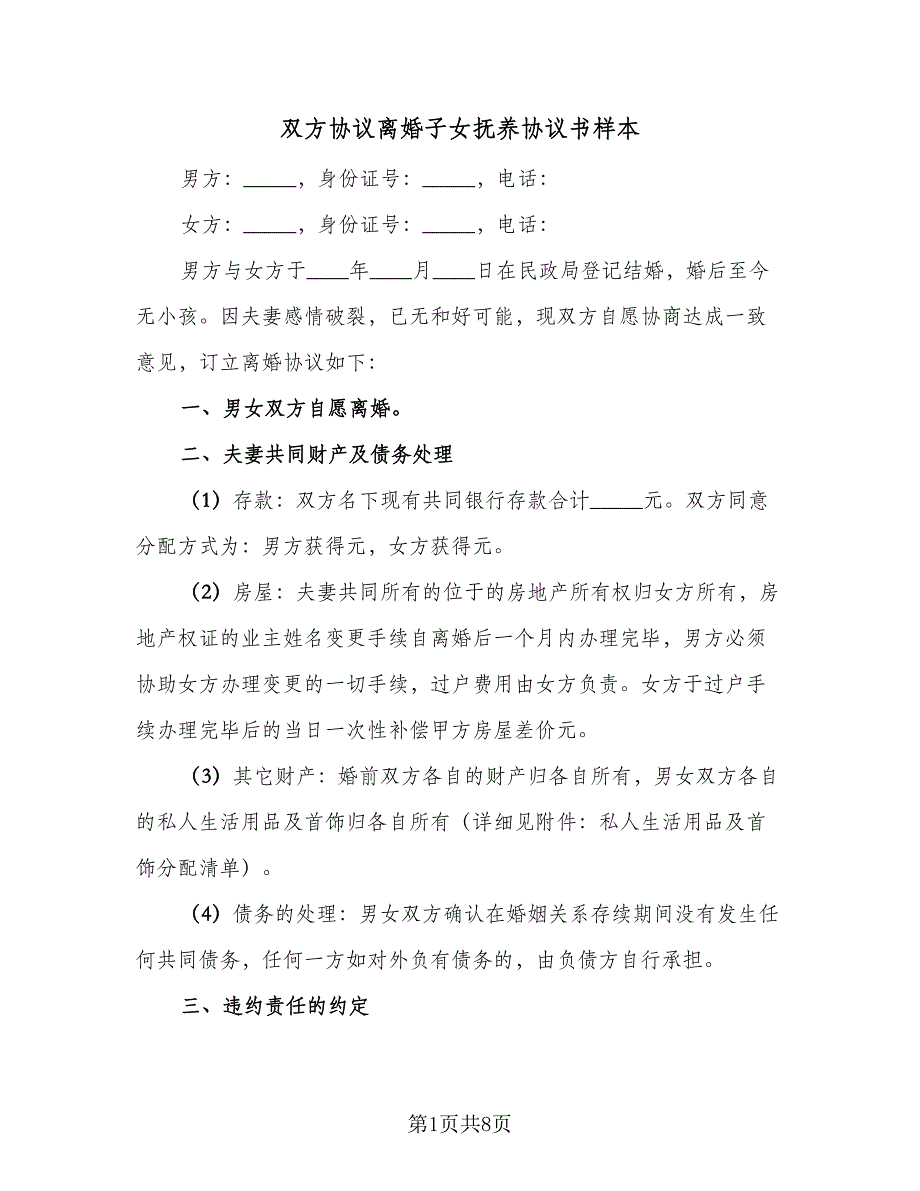 双方协议离婚子女抚养协议书样本
男方：_____，身份证号：_____，电话：
女方：_____，身份证号：_____，电话：
男方与女方于____年____月____日在民政局登记结婚，婚后至今
无小孩。因夫妻感情破裂，已无和好可能，现双方自愿协商达成一致
意见，订立离婚协议如下：
一、男女双方自愿离婚。
二、夫妻共同财产及债务处理
（1）存款：双方名下现有共同银行存款合计_____元。双方同意
分配方式为：男方获得元，女方获得元。
（2）房屋：夫妻共同所有的位于的房地产所有权归女方所有，房
地产权证的业主姓名变更手续自离婚后一个月内办理完毕，男方必须
协助女方办理变更的一切手续，过户费用由女方负责。女方于过户手
续办理完毕后的当日一次性补偿甲方房屋差价元。
（3）其它财产：婚前双方各自的财产归各自所有，男女双方各自
的私人生活用品及首饰归各自所有（详细见附件：私人生活用品及首
饰分配清单）。
（4）债务的处理：男女双方确认在婚姻关系存续期间没有发生任
何共同债务，任何一方如对外负有债务的，由负债方自行承担。
三、违约责任的约定
第1页共8页